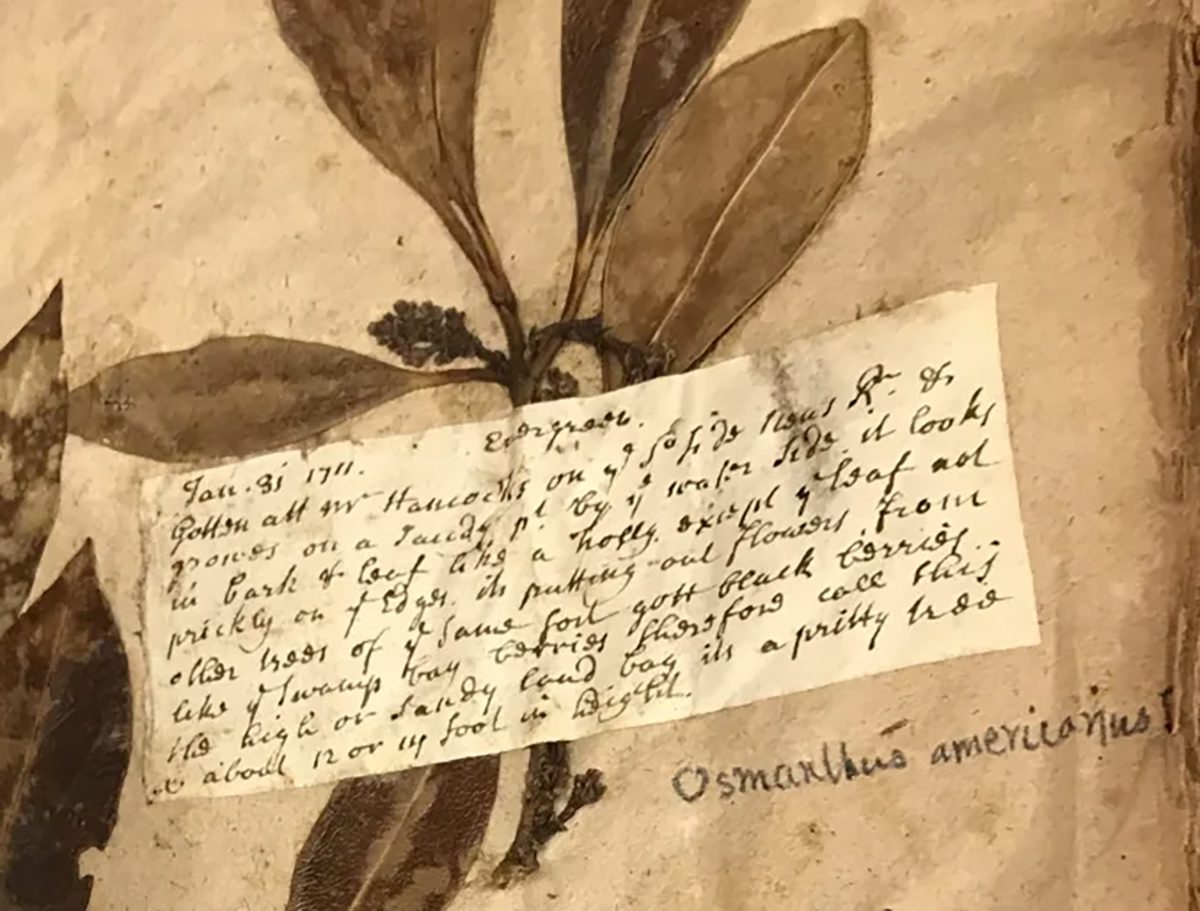 Evergreen.
Jan. 31 1711.
Gotten att mr Hancocks on ye So side News Rr. &
growes on a Sandy pt. by ye water side. it looks
in bark & leaf like a holly. except ye leaf not
prickly on ye Edges. its putting out flowers. from
other trees of ye same sort gott black berries..
like ye swamp bay berries therefore call this
the high or sandy land bay its a pritty tree
about 12 or 14 foot in height.
Osmanthus americanus!